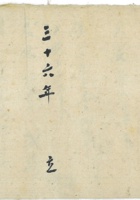 三十六年 立